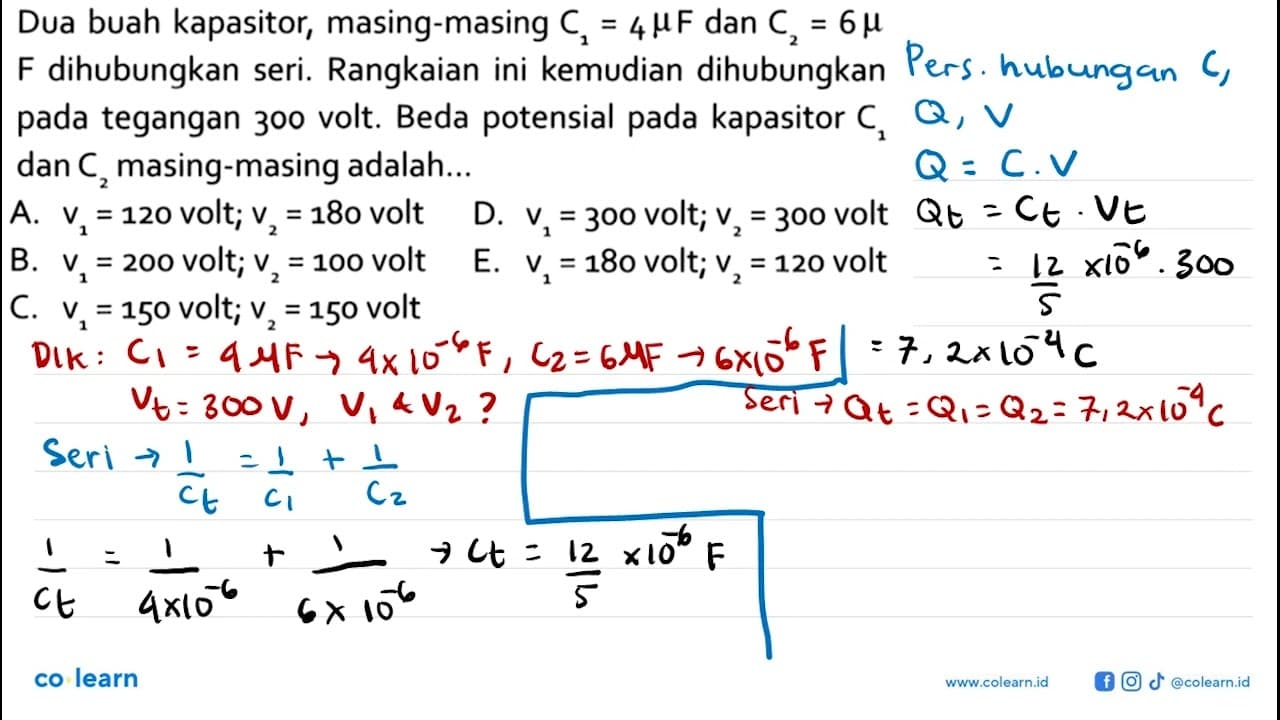 Dua buah kapasitor, masing-masing C₁ = 4 μF dan C₂ = 6 μ
F dihubungkan seri. Rangkaian ini kemudian dihubungkan
pada tegangan 300 volt. Beda potensial pada kapasitor C₁
dan C₂ masing-masing adalah...
A. v₁ = 120 volt; v₂ = 180 volt
B. v₁ = 200 volt; v₂ = 100 volt
C. v₁ = 150 volt; v₂ = 150 volt
D. v₁ = 300 volt; v₂ = 300 volt
E. v₁ = 180 volt; v₂ = 120 volt
Pers. hubungan C,
Q, V
Q = C . V
Qt = Ct . Vt
= 12/5 x10⁻⁶ . 300
= 7,2x10⁻⁴ C
Dik : C₁ = 4 μF → 4x10⁻⁶ F, C₂ = 6 μF → 6x10⁻⁶ F
Vt = 300 V, V₁ & V₂ ?
Seri → Qt = Q₁ = Q₂ = 7,2x10⁻⁴ C
Seri → 1/Ct = 1/C₁ + 1/C₂
1/Ct = 1/4x10⁻⁶ + 1/6x10⁻⁶ → Ct = 12/5 x10⁻⁶ F
co learn
www.colearn.id
@colearn.id